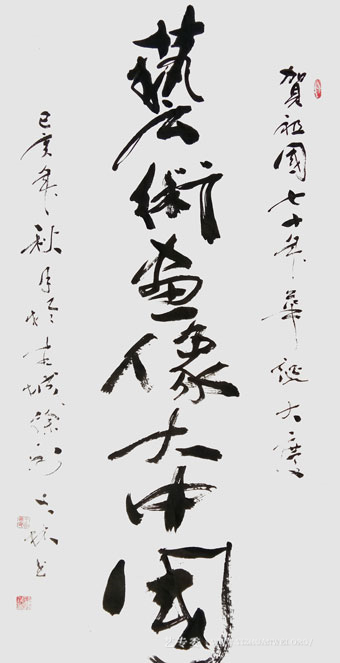 賀祖國七十年華誕大慶
藝術畫像大中國
己亥年秋月於城徐州